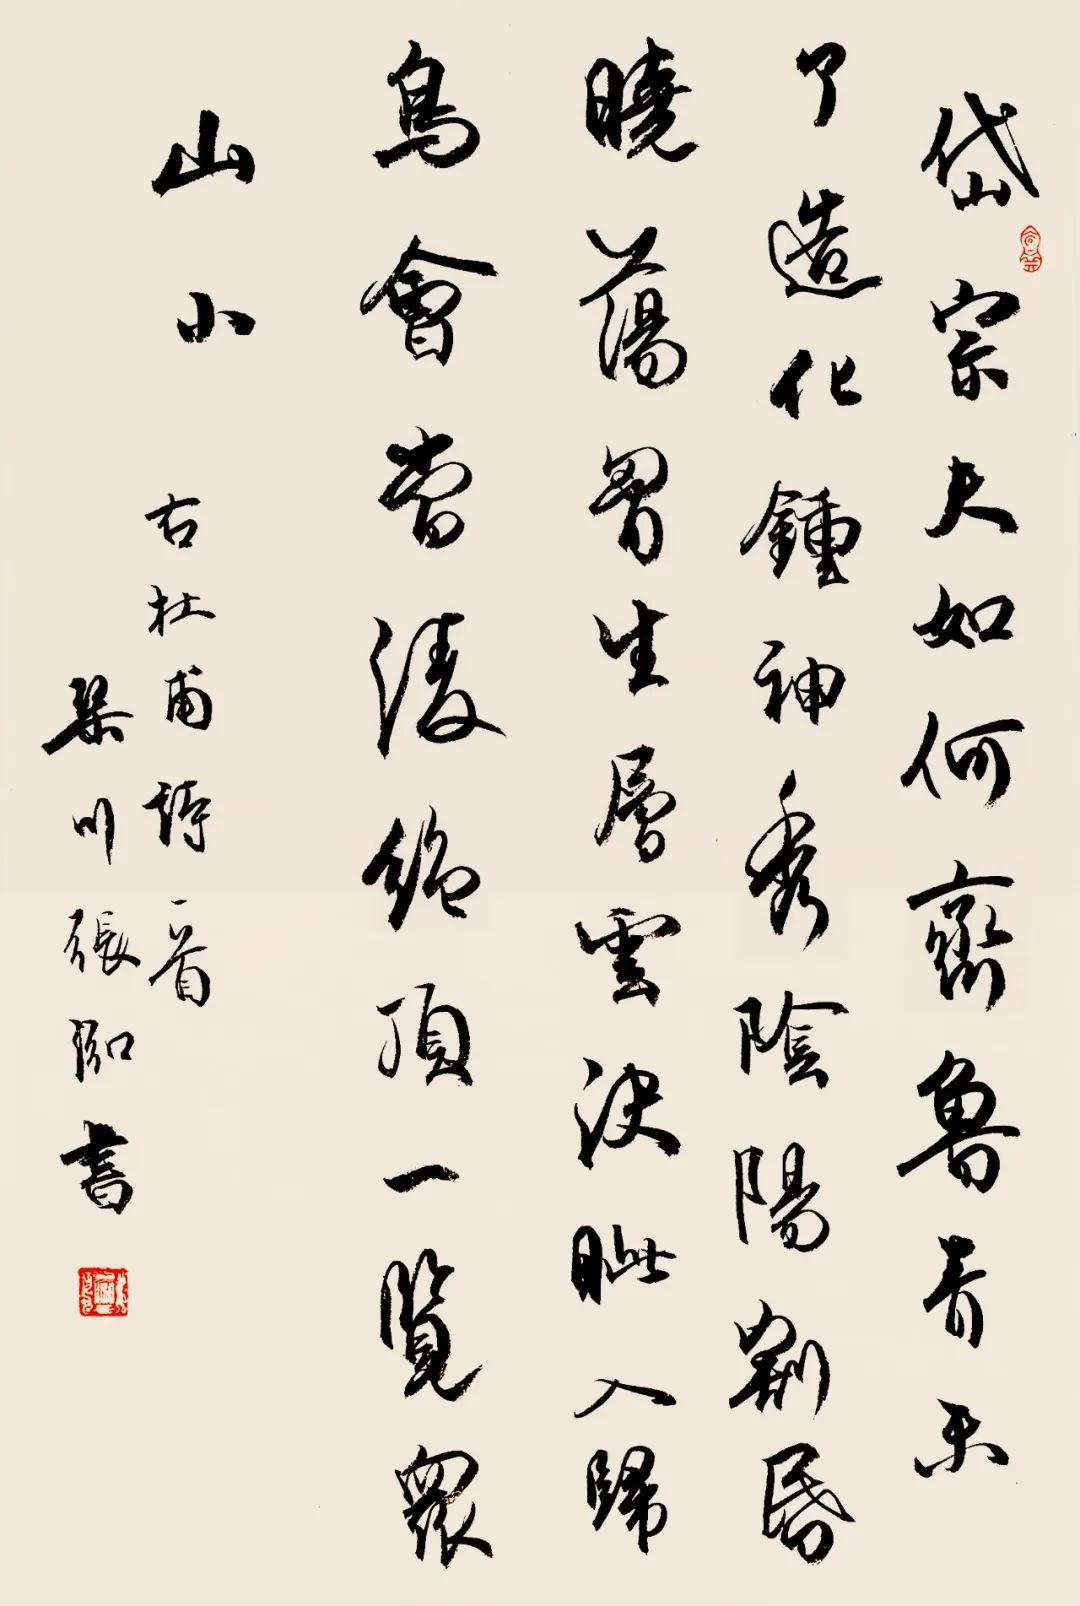 岱宗夫如何齊魯青未
了造化鍾神秀陰陽割昏
曉蕩胷生層雲決眦入歸
鳥會當淩絕頂一覽眾
山小 右杜甫詩一首
川張書